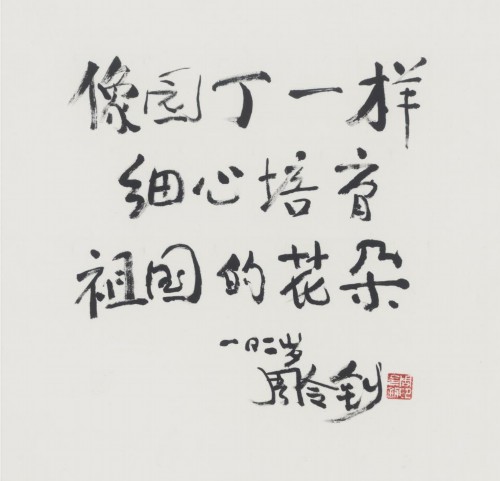 像园丁一样
细心培育
祖国的花朵
一〇二岁
周令钊